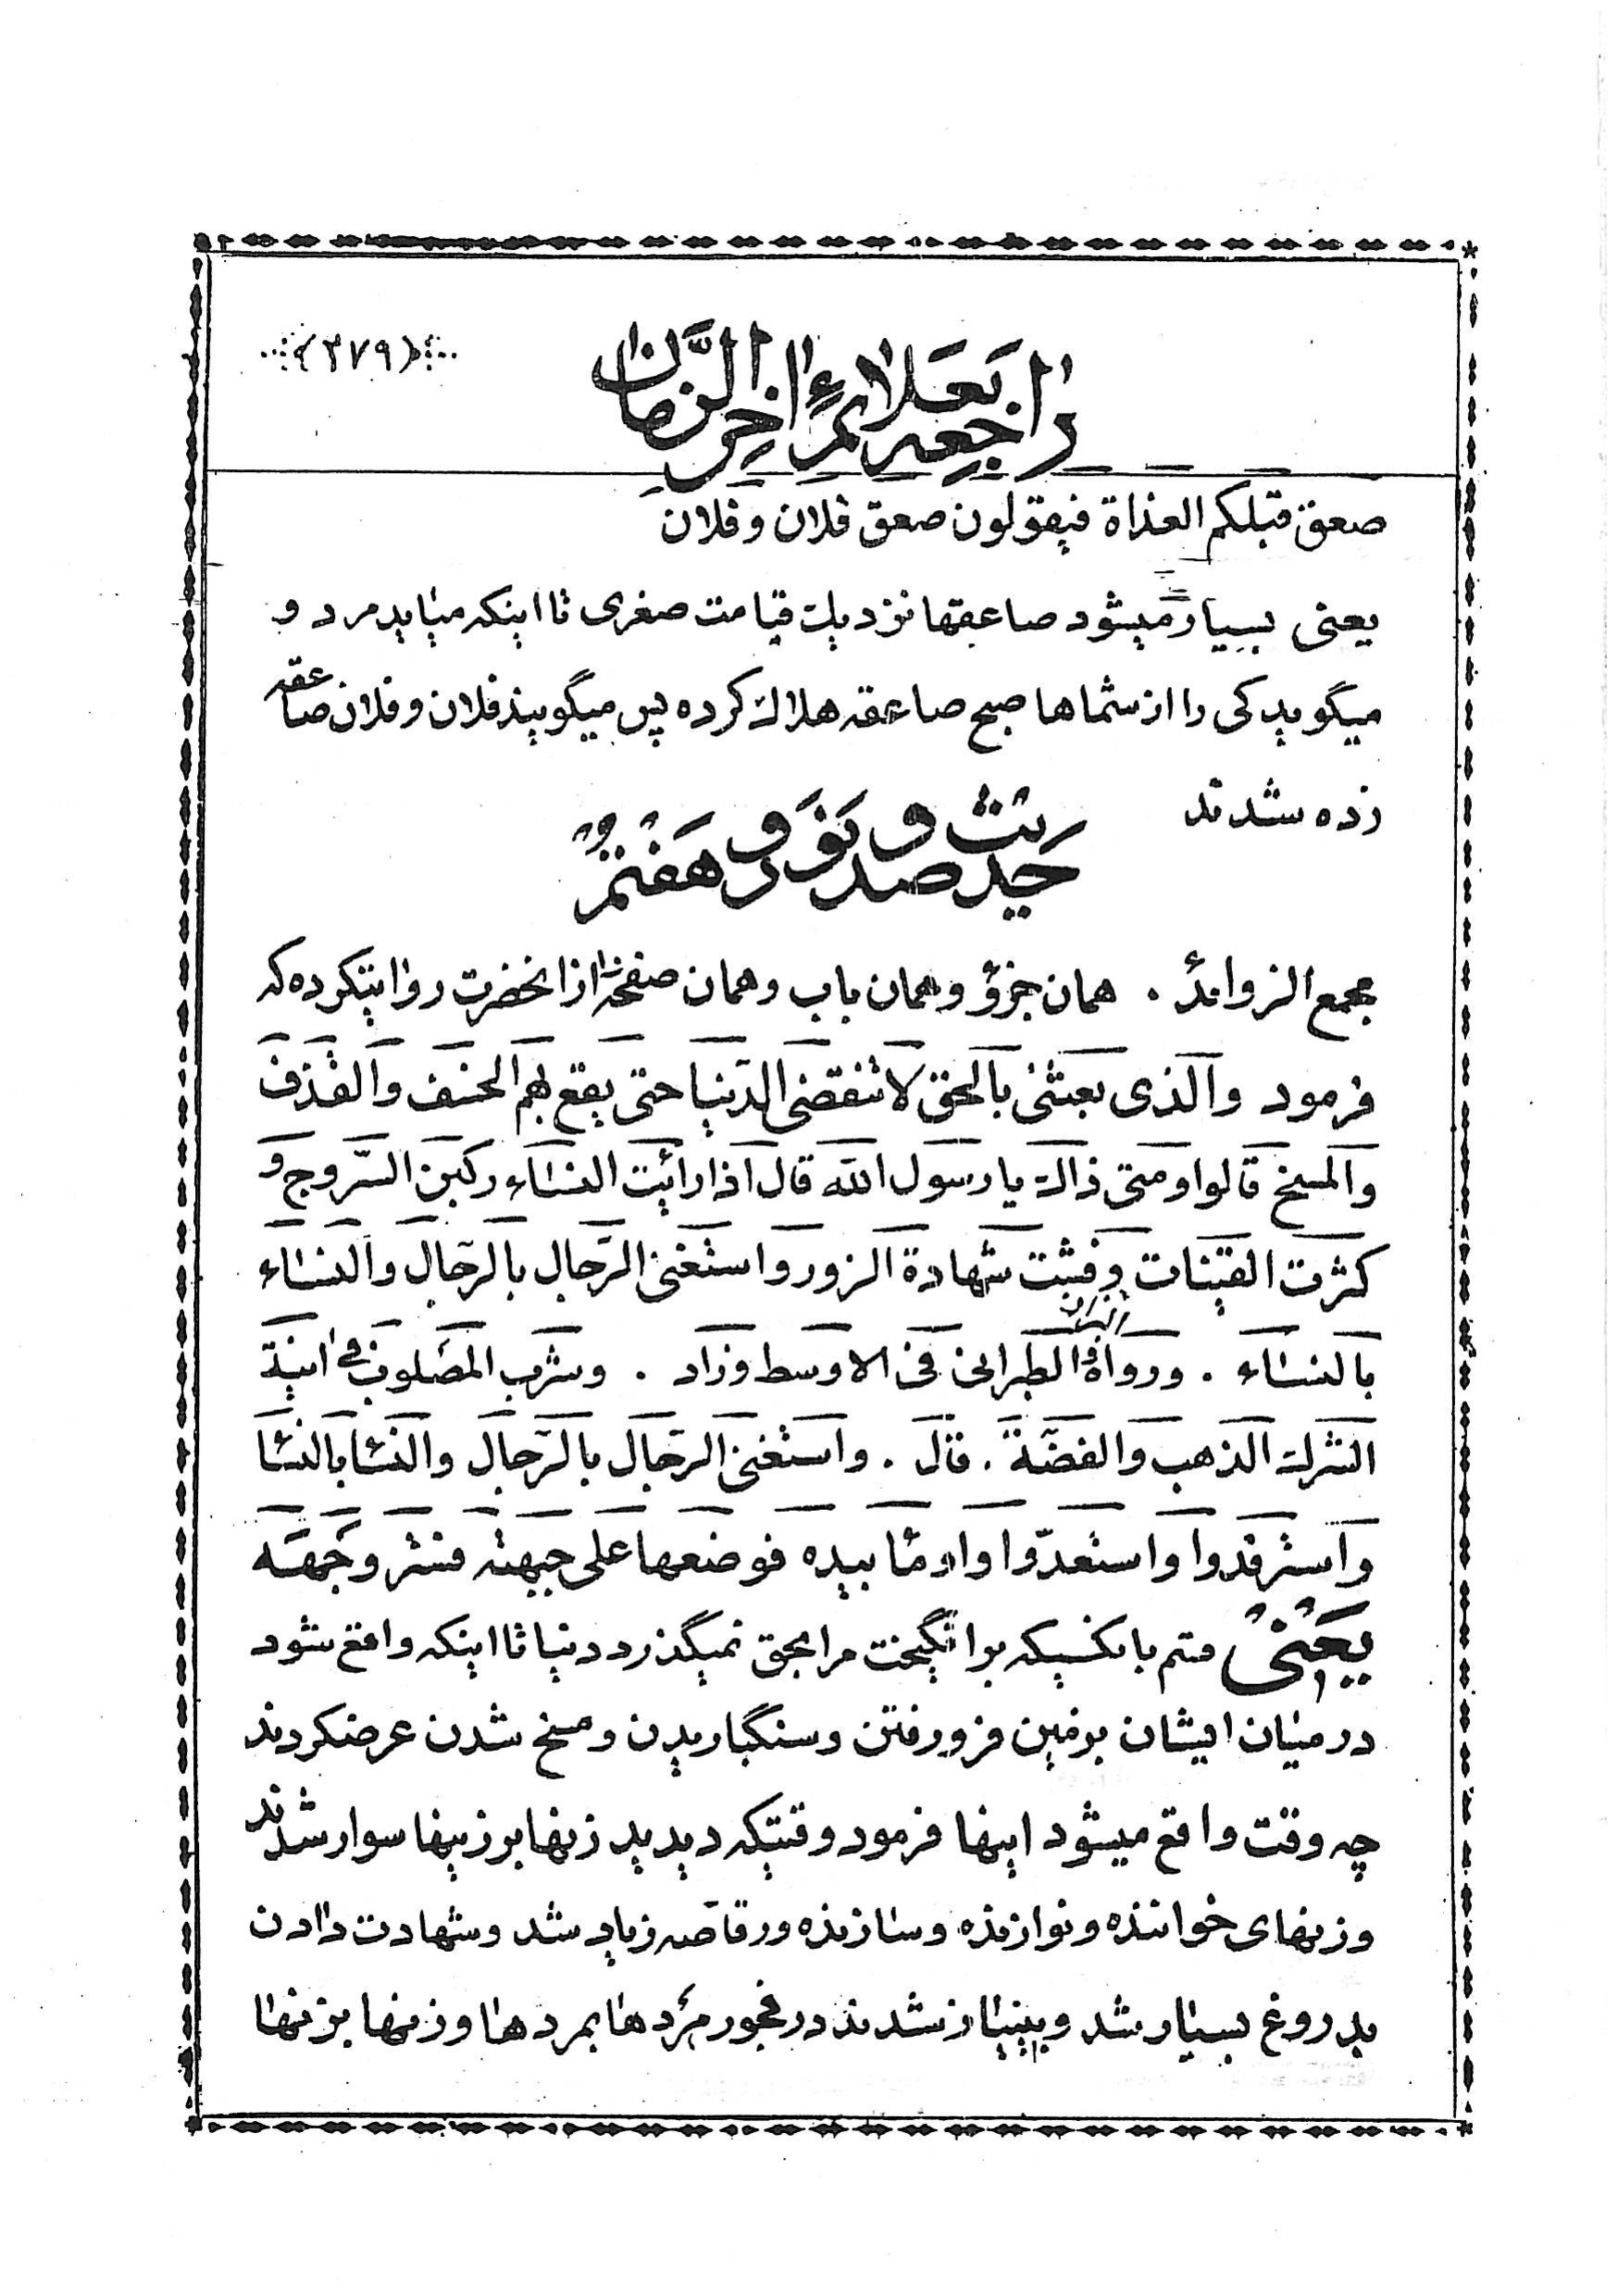 راجعه بعلائم آخر الزَّمان
﴿۲۷۹﴾
صعق قبلكم الغداة فيقولون صعق فلان و فلان
یعنی بسیار میشود صاعقها نزدیك قیامت صغری تا اینکه میٰاید مرد و
میگوید کی را از شماها صبح صاعقه هلاك کرده پس میگویند فلان و فلان صاعقه
زده شدند
حدیث صد و نود و هفتم
مجمع الزوائد . همان جزؤ و همان باب و همان صفحه از انحضرت روایتکرده که
فرمود والّذى بعثنى بالحق لا تنقضى الدّنيا حتى يقع بهم الخسف والقذف
والمسخ قالوا ومتى ذاك يا رسول الله قال اذا رائيت النسٰاء ركبن السّروج و
كثرت القينات وفشت شهادة الزور واستغنى الرّجال بالرّجال والنسٰاء
بالنسٰاء . ورواه البزار و الطبرانى فى الاوسط وزاد . وشرب المصلون فى انية
الشرك الذهب والفضّة . قال . واستغنى الرّجال بالرّجال والنسٰا بالنسٰا
واستزفدوا واستعدّوا واومٰا بيده فوضعها على جبهته فستر وجهه
یَعْنی قسم بانکسیکه برانگیخت مرا بحق نمیگذرد دنیا تا اینکه واقع شود
در میٰان ایشان بزمین فرو رفتن و سنگباریدن و مسخ شدن عرضکردند
چه وقت واقع میشود اینها فرمود وقتیکه دیدید زنها بر زینها سوار شدند
و زنهای خواننده و نوازنده و سٰازنده و رقاصه زیاد شد و شهادت دٰادن
بدروغ بسیٰار شد و بینیٰاز شدند در فجور مردهٰا بمردهٰا و زنها بزنهٰا